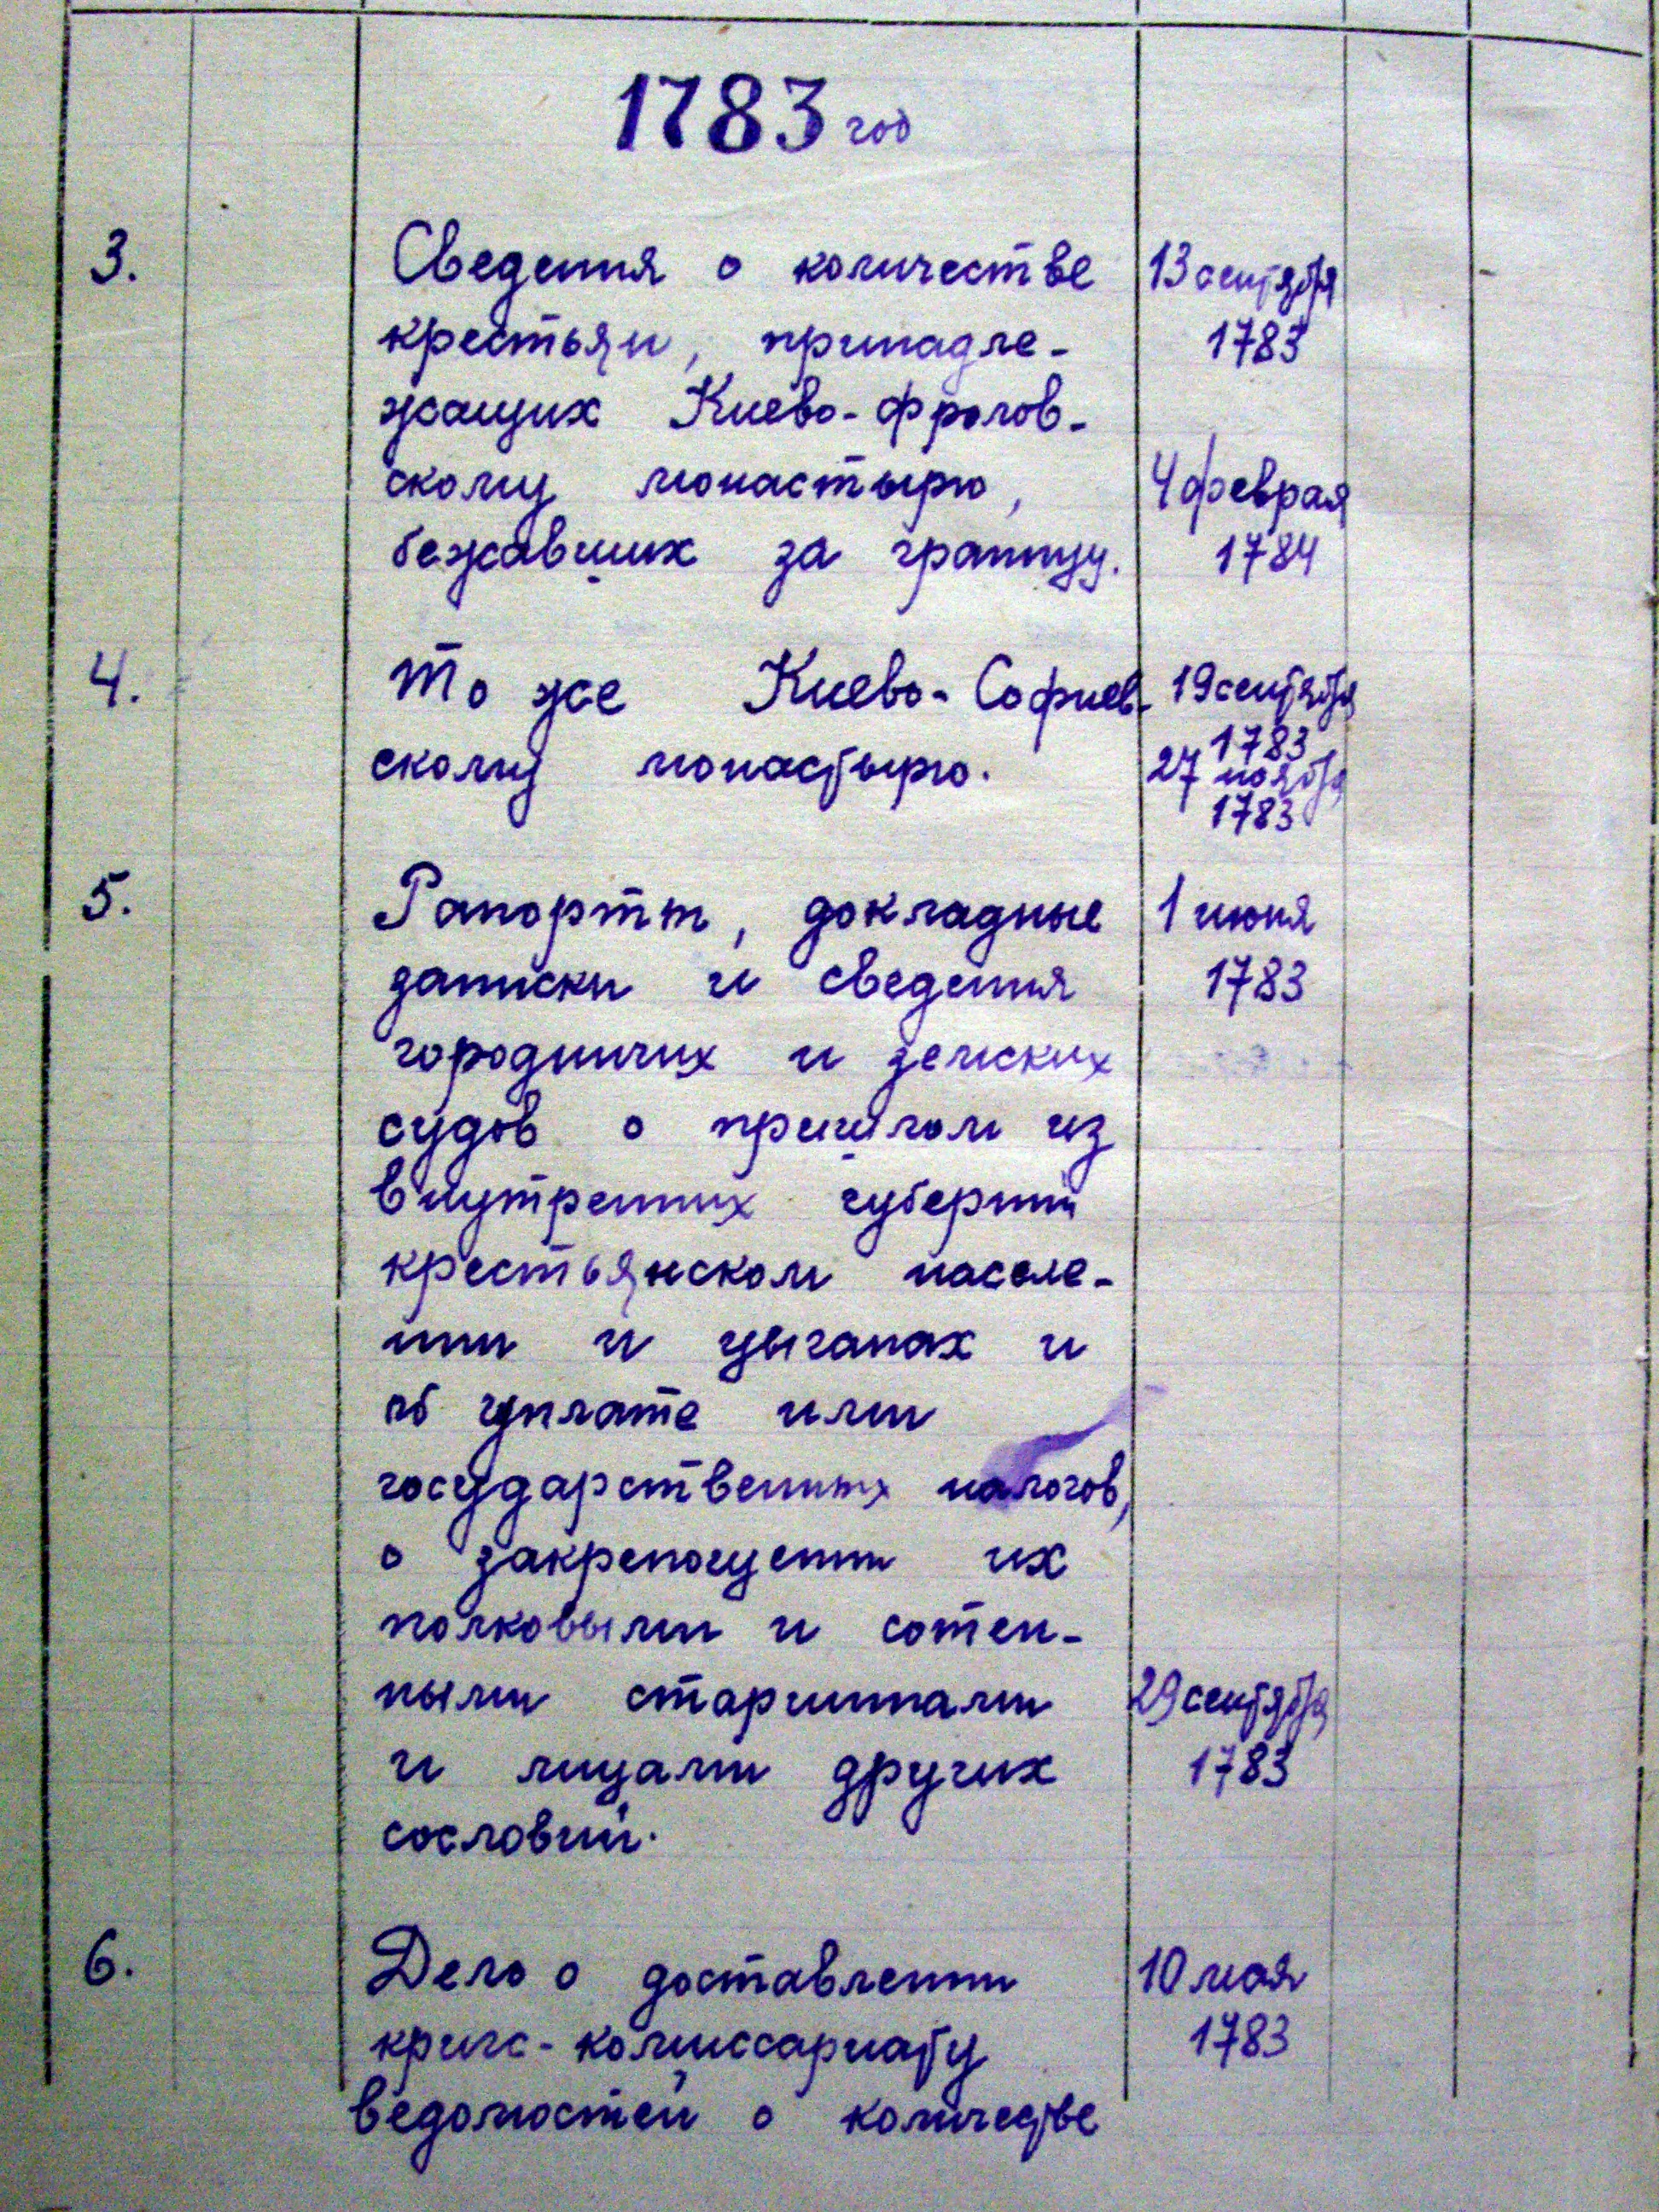 1783 год
3. Сведения о количестве 13 сентября
крестьян, принадле- 1783
жащих Киево-фролов-
скому монастырю, 4 феврая
бежавших за границу. 1784
4. То же Киево-Софиев- 19 сентября
1783
скому монастырю. 27 ноября
1783
5. Рапорты, докладные 1 июня
записки и сведения 1783
городничих и земских
судов о пришлом из
внутренних губерний
крестьянском населе-
нии и цыганах и
об уплате ими
государственных налогов,
о закрепощении их
полковыми и сотен-
ными старшинами 29 сентября
и лицами других 1783
сословий.
6. Дело о доставлении 10 мая
кригс-комиссариату 1783
ведомостей о количестве